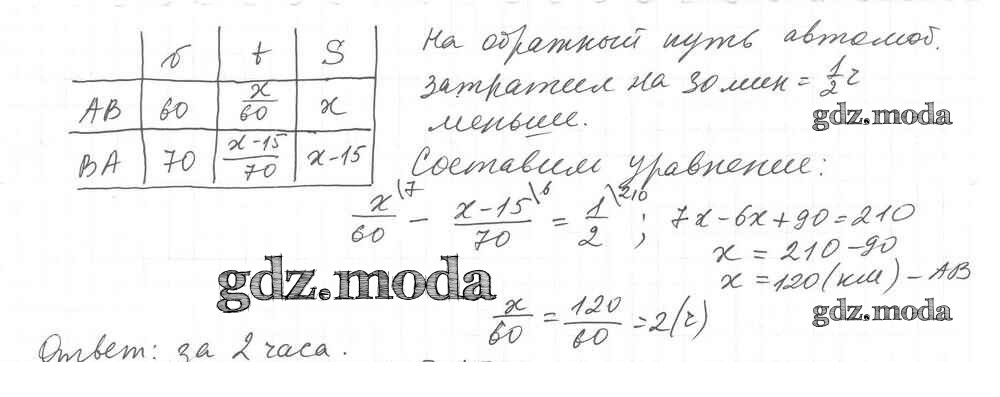 v t S
AB 60 x/60 x
BA 70 (x-15)/70 x-15
На обратный путь автомоб.
затратил на 30 мин = 1/2 ч
меньше.
gdz.moda
Составим уравнение:
x/60 \7 - (x-15)/70 \6 = 1/2 \210 ; 7x-6x+90=210
x = 210-90
x = 120(км) - AB
gdz.moda
gdz.moda
x/60 = 120/60 = 2(ч)
Ответ: за 2 часа.